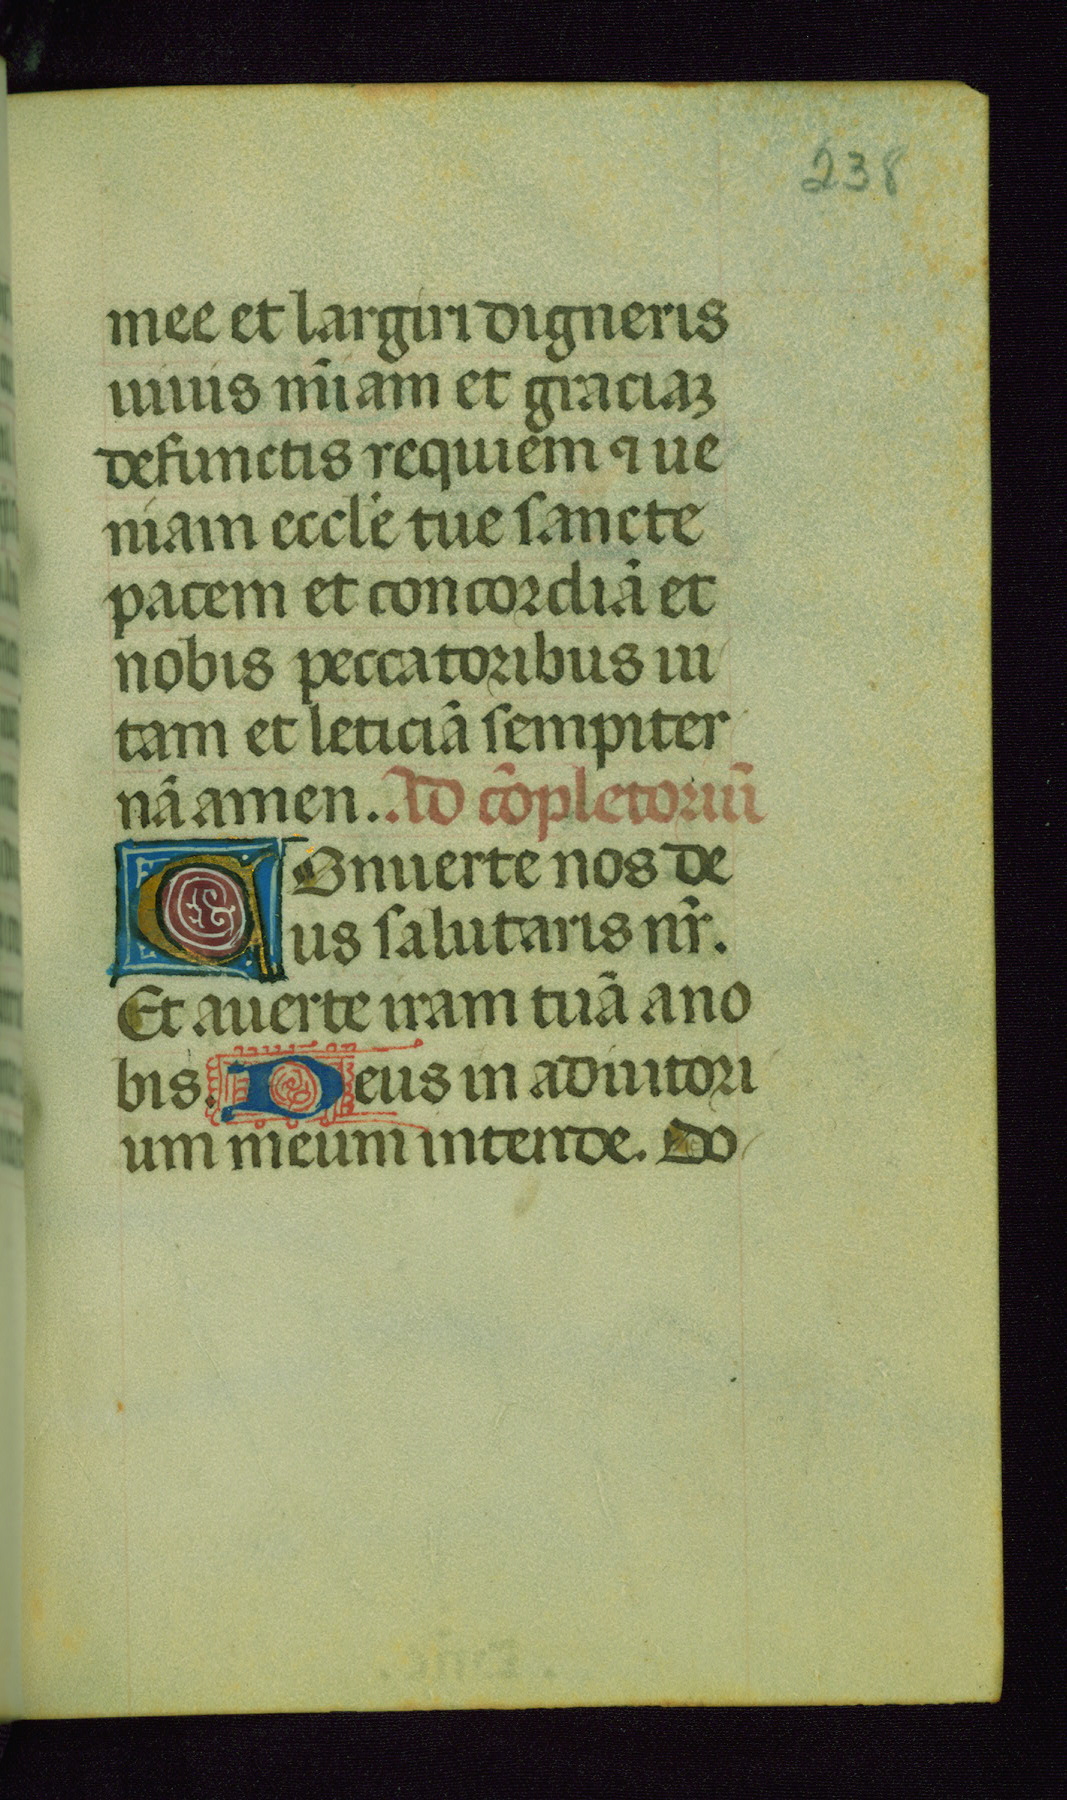 238
mee et largiri digneris
uiuis mĩam et graciaꝫ
defunctis requiem ⁊ ue
niam eccle᷒ tue sancte
pacem et concordiã et
nobis peccatoribus ui
tam et leticiã sempiter
nã amen. Ad cõpletoriũ
COnuerte nos de
us salutaris nr̃.
Et auerte iram tuã ano
bis. Deus in adiutori
um meum intende. Do